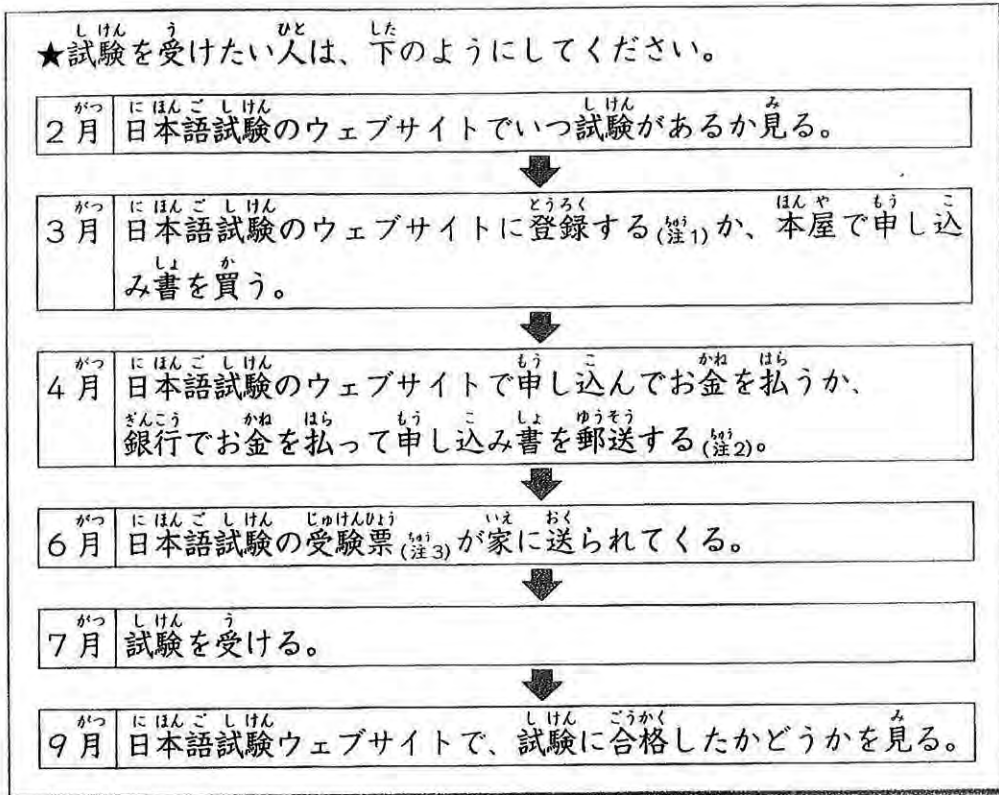 ★試験を受けたい人は、下のようにしてください。
2月 日本語試験のウェブサイトでいつ試験があるか見る。
3月 日本語試験のウェブサイトに登録する(注1)か、本屋で申し込
み書を買う。
4月 日本語試験のウェブサイトで申し込んでお金を払うか、
銀行でお金を払って申し込み書を郵送する(注2)。
6月 日本語試験の受験票(注3)が家に送られてくる。
7月 試験を受ける。
9月 日本語試験ウェブサイトで、試験に合格したかどうかを見る。